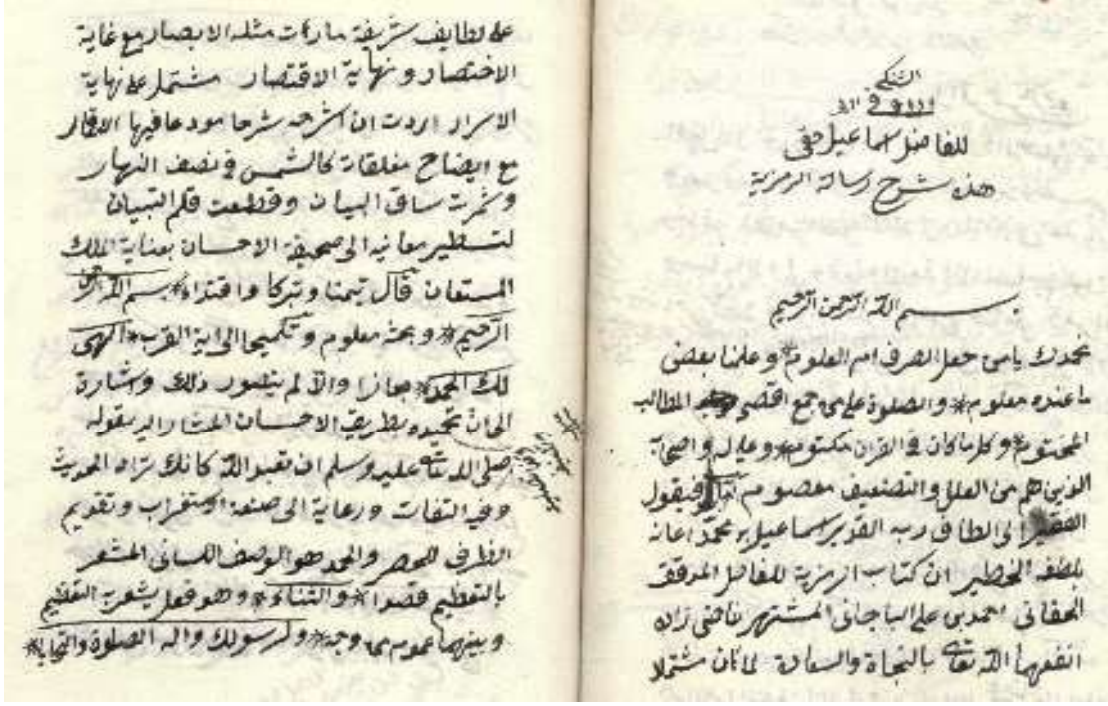 للفاضل اسماعيل حقى
هذه شرح رسالة الرمزية
بسم الله الرحمن الرحيم
نحمدك يا من جعل الصرف ام العلوم * وعلمنا بعض
ما عنده معلوم * والصلوة على من جمع اقصى المطالب
المختوم * وكلما كان فى القرآن مكتوم * وعلى اله واصحابه
الذين هم من العلل والتضعيف معصوم فيقول
الفقير الى الطاف ربه القدير اسماعيل بن محمد اعانه
بلطفه الخطير ان كتاب الرمزية للفاضل المدقق
الحقانى احمد بن على الباجانى المشتهر بقاضى زاده
انفعهما الله تعالى بالنجاة والسعادة لما كان مشتملا
على لطايف شريفة ما رأت مثله الابصار مع غاية
الاختصار ونهاية الاقتصار مشتمل على نهاية
الاسرار اردت ان اشرحه شرحا مودعا فيها الافكار
مع ايضاح مغلقاته كالشمس فى نصف النهار
وشمرت ساق البيان وقطعت قلم التبيان
لتسطير معانيه الى صحيفة الاحسان بعناية الملك
المستعان قال تيمنا وتبركا واقتداء * بسم الله الرحمن
الرحيم * وبحثه معلوم وتلميحا الى اية القرب * الهى
لك الحمد * جازا والا لم يتصور ذلك واشارة
الى ان تحميده بطريق الاحسان المشار اليه بقوله
صلى الله تعالى عليه وسلم ان تعبد الله كانك تراه الحديث
وفيه التفات ورعاية الى صنعة الاستغراب وتقديم
الظرف للحصر والحمد هو الوصف اللسانى المشعر
بالتعظيم قصدا * والثناء * وهو فعل يشعر به التعظيم
وبينهما عموم من وجه * ولرسولك واله الصلوة والتحايا *